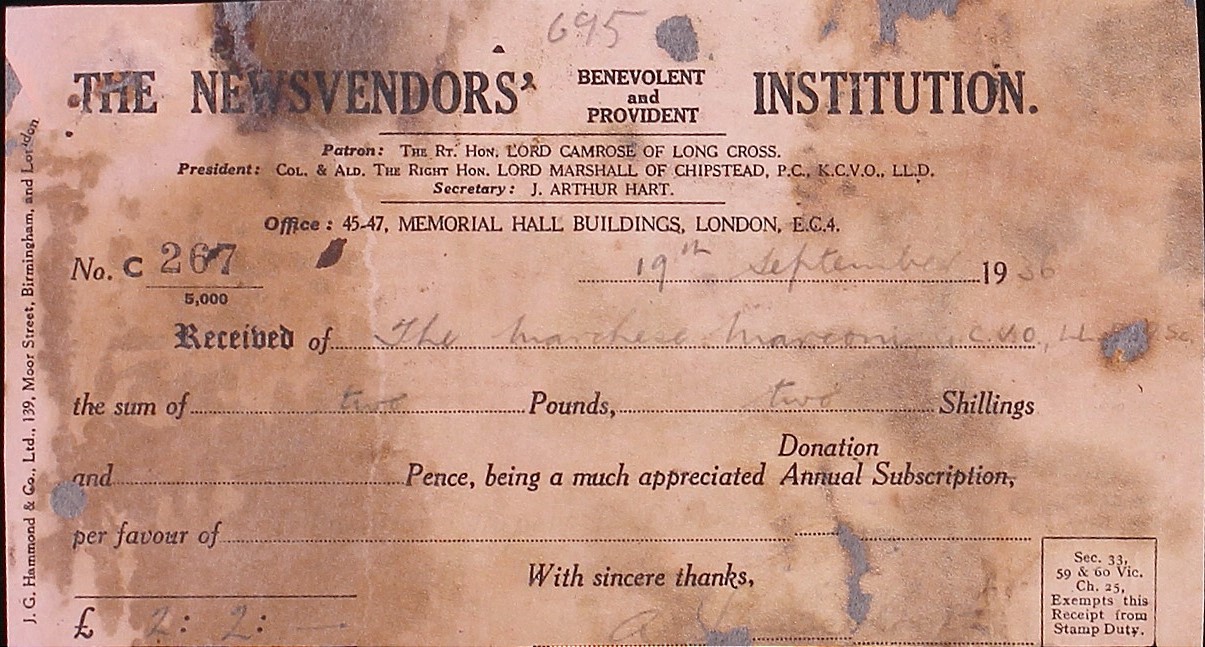 695
THE NEWSVENDORS' BENEVOLENT and PROVIDENT INSTITUTION.
Patron: THE RT. HON. LORD CAMROSE OF LONG CROSS.
President: COL. & ALD. THE RIGHT HON. LORD MARSHALL OF CHIPSTEAD, P.C., K.C.V.O., LL.D.
Secretary: J. ARTHUR HART.
Office: 45-47, MEMORIAL HALL BUILDINGS, LONDON, E.C.4.
No. C 267
5,000
19th September 1936
Received of The Marchese Marconi C.V.O., LL.
the sum of two Pounds, two Shillings
Donation
and Pence, being a much appreciated Annual Subscription,
per favour of
With sincere thanks,
£ 2: 2: —
Sec. 33,
59 & 60 Vic.
Ch. 25,
Exempts this
Receipt from
Stamp Duty.
J. G. Hammond & Co., Ltd., 139, Moor Street, Birmingham, and London